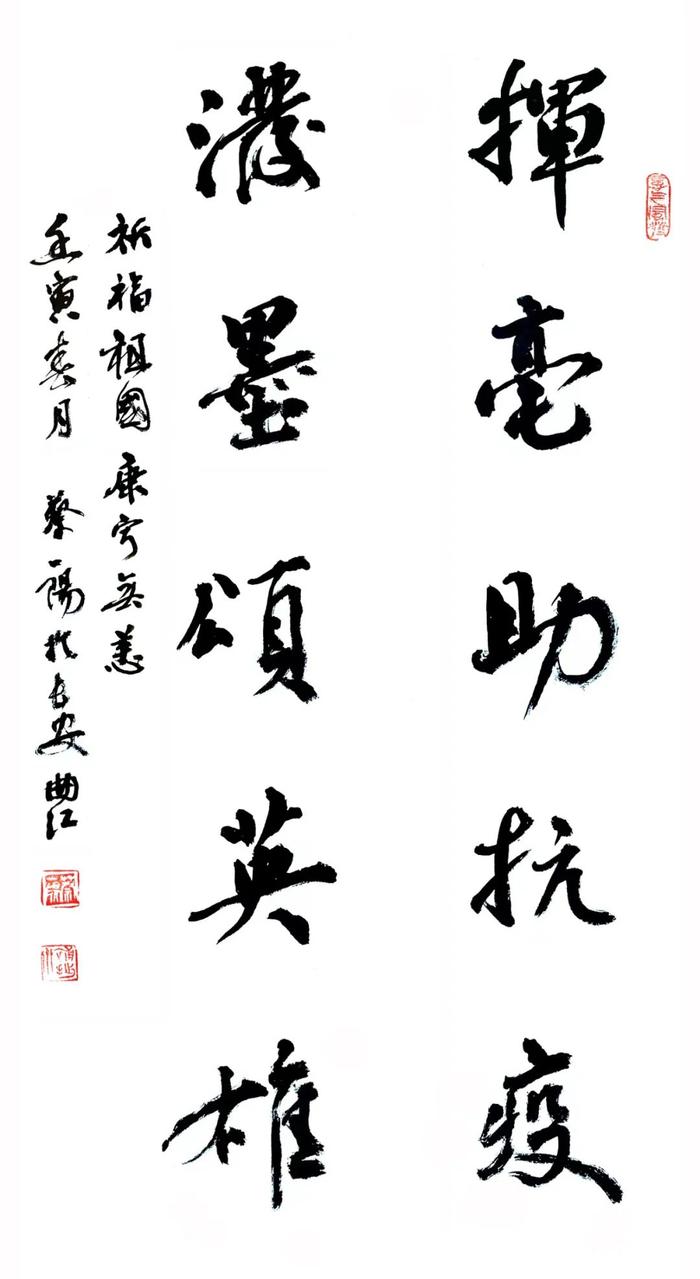 揮毫助抗疫
潑墨頌英雄
祈福祖國康寧無恙
壬寅春月 蔡陽於長安曲江